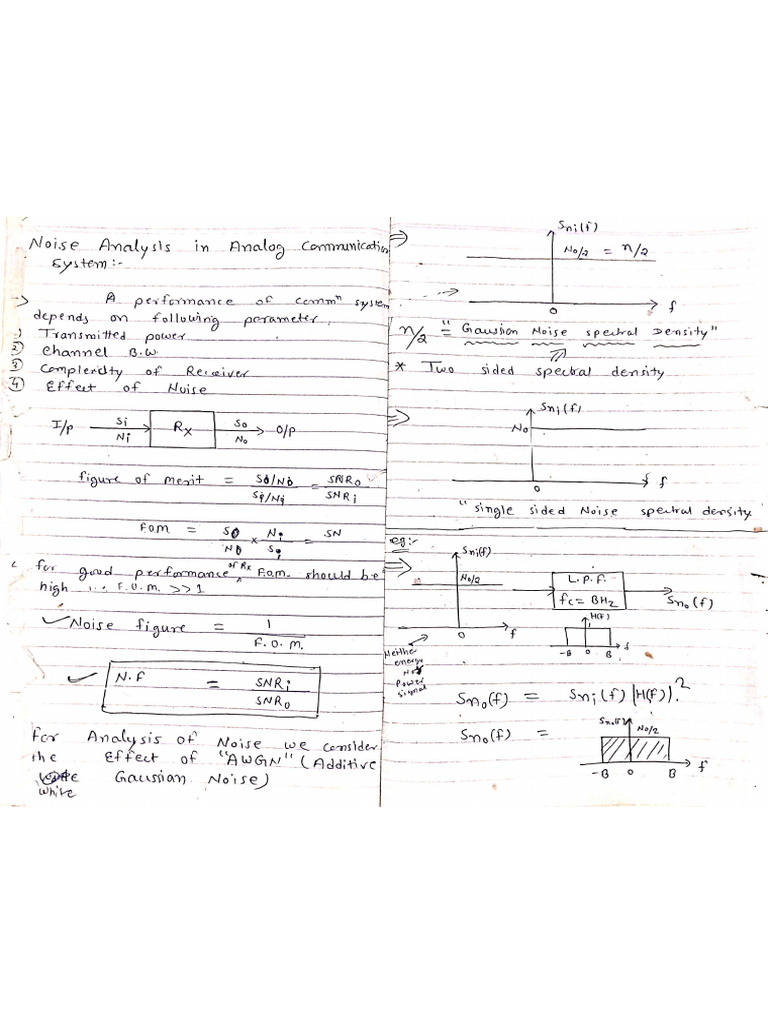 Noise Analysis in Analog Communication
System:-
→ A performance of commⁿ system
depends on following parameter.
1) Transmitted power
② Channel B.W.
③ Complexity of Receiver
④ Effect of Noise
I/p Si/Ni Rx So/No O/P
figure of merit = So/No / Si/Ni = SNRo / SNRi
FOM = So/No × Ni/Si = SN
for good performance of Rx F.o.m. should be
high i.e. F.O.M. >> 1
✓ Noise figure = 1 / F.O.M.
✓ N.F = SNRi / SNRo
For Analysis of Noise we consider
the Effect of "AWGN" (Additive
white Gaussian Noise)
⇒ Sni(f)
No/2 = n/2
→ 0 f
n/2 = "Gaussian Noise spectral Density"
* Two sided spectral density
⇒ Sni(f)
No
0 f
"single sided Noise spectral density
eg:-
⇒ Sni(f)
No/2
0 f
L.P.F.
fc = BHz
Sno(f)
H(f)
-B 0 B f
Neither
energy
Nor
Power
signal
Sno(f) = Sni(f) |H(f)|.²
Sno(f) =
Sno(f) No/2
-B 0 B f